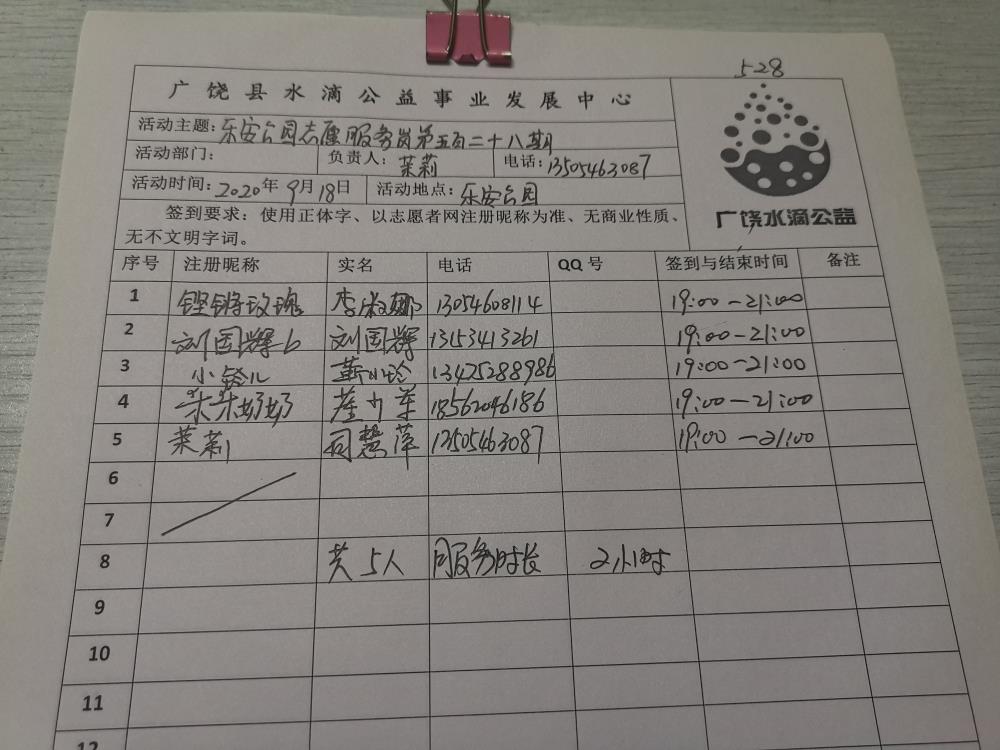 528
广饶县水滴公益事业发展中心
广饶水滴公益
活动主题：乐安公园志愿服务岗第五百二十八期
活动部门： 负责人：茉莉 电话：13505463087
活动时间：2020年9月18日 活动地点：乐安公园
签到要求：使用正体字、以志愿者网注册昵称为准、无商业性质、
无不文明字词。
序号 注册昵称 实名 电话 QQ 号 签到与结束时间 备注
1 铿锵玫瑰 李淑娜 13054608114 19:00-21:00
2 刘国辉b 刘国辉 13153413261 19:00-21:00
3 小铃儿 小玲 13475288986 19:00-21:00
4 朵朵奶奶 18562046186 19:00-21:00
5 茉莉 司慧萍 13505463087 19:00-21:00
6
7
8 共5人 服务时长 2小时
9
10
11
12